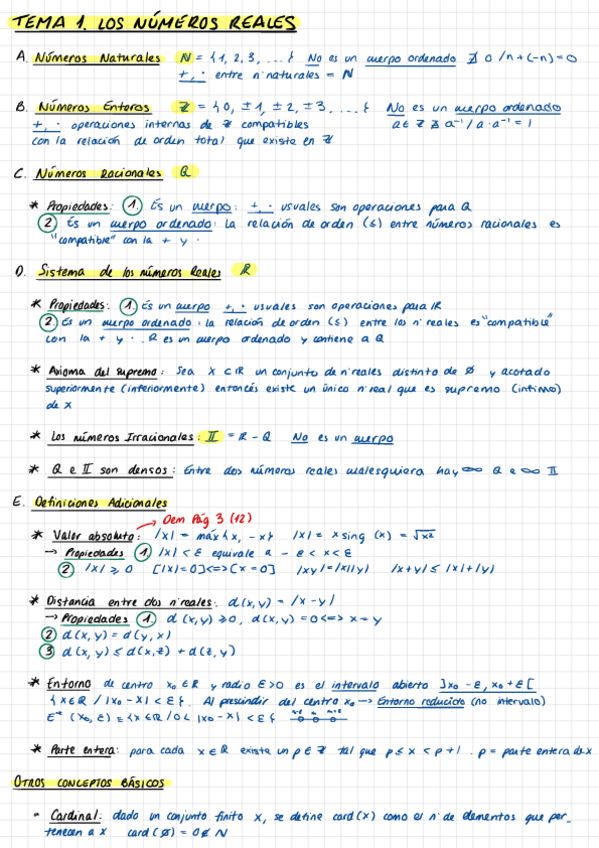 TEMA 1. LOS NÚMEROS REALES
A. Números Naturales N = {1, 2, 3, ...} No es un cuerpo ordenado ∄ 0 / n + (-n) = 0
+, · entre nºnaturales = N
B. Números Enteros Z = {0, ±1, ±2, ±3, ...} No es un cuerpo ordenado
+, · operaciones internas de Z compatibles a ∈ Z ∄ a⁻¹ / a · a⁻¹ = 1
con la relación de orden total que existe en Z
C. Números Racionales Q
* Propiedades: 1. Es un cuerpo: +, · usuales son operaciones para Q
2. Es un cuerpo ordenado: La relación de orden (≤) entre números racionales es
"compatible" con la + y ·
D. Sistema de los números Reales R
* Propiedades: 1. Es un cuerpo +, · usuales son operaciones para R
2. Es un cuerpo ordenado: la relación de orden (≤) entre los nºreales es "compatible"
con la + y · . R es un cuerpo ordenado y contiene a Q
* Axioma del supremo: Sea X ⊂ R un conjunto de nºreales distinto de Ø y acotado
superiormente (inferiormente) entonces existe un único nºreal que es supremo (ínfimo)
de X
* Los números Irracionales: II = R - Q No es un cuerpo
* Q e II son densos: Entre dos números reales cualesquiera hay ∞ Q e ∞ II
E. Definiciones Adicionales
Dem Pág 3 (12)
* Valor absoluto: |x| = máx{x, -x} |x| = x sing (x) = √x²
→ Propiedades 1. |x| < ε equivale a - ε < x < ε
2. |x| ≥ 0 [|x| = 0] <=> [x = 0] |xy| = |x||y| |x+y| ≤ |x| + |y|
* Distancia entre dos nºreales: d(x,y) = |x - y|
→ Propiedades 1. d(x,y) ≥ 0, d(x,y) = 0 <=> x = y
2. d(x,y) = d(y,x)
3. d(x,y) ≤ d(x,z) + d(z,y)
* Entorno de centro x₀ ∈ R y radio ε > 0 es el intervalo abierto ]x₀ - ε, x₀ + ε[
{x ∈ R / |x₀ - x| < ε}. Al prescindir del centro x₀ → Entorno reducido (no intervalo)
E* (x₀, ε) = {x ∈ R / 0 < |x₀ - x| < ε}
* Parte entera: para cada x ∈ R existe un p ∈ Z tal que p ≤ x < p+1. p = parte entera de x
OTROS CONCEPTOS BÁSICOS
- Cardinal: dado un conjunto finito X, se define card(X) como el nº de elementos que per_
tenecen a X card (Ø) = 0 ∉ N